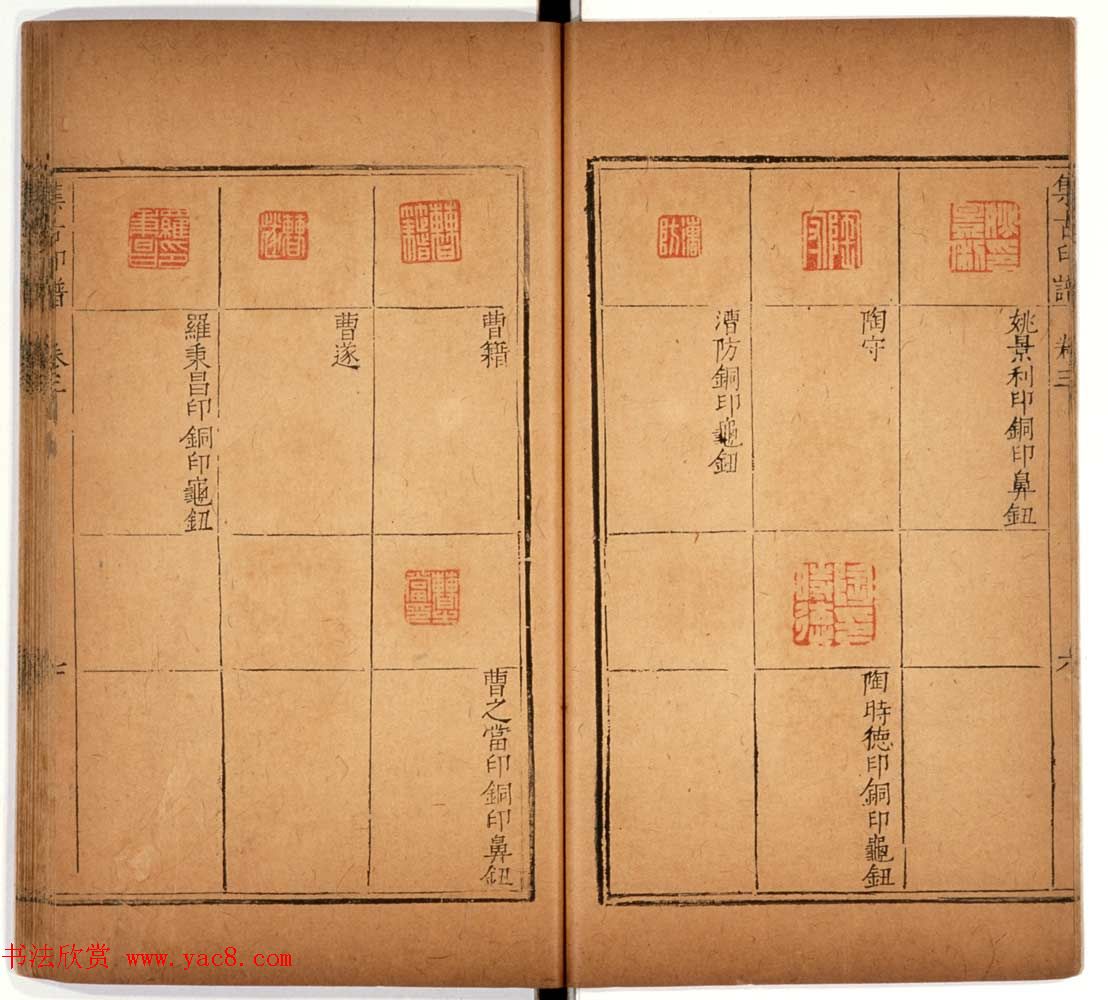 集古印譜 卷三 六
姚景利印銅印鼻鈕
陶守
陶時德印銅印龜鈕
漕防銅印龜鈕
曹籍
曹之當印銅印鼻鈕
曹遂
羅秉昌印銅印龜鈕
集古印譜 卷三
书法欣赏 www.yac8.com